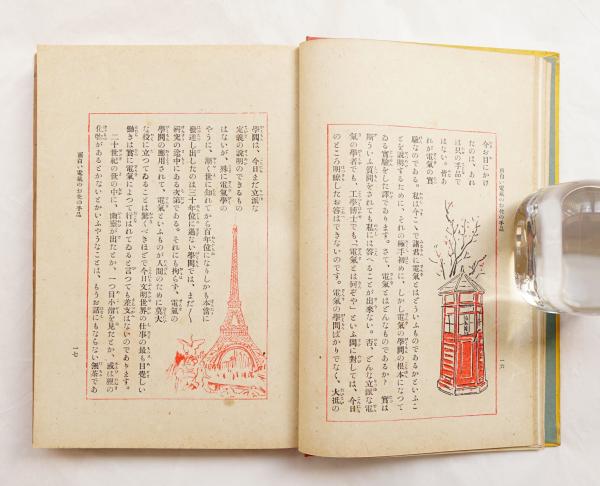 面白い電氣のお化の手品
一六
今お目にかけ
たのは、あれ
は只の手品で
はない。皆あ
れが電氣の實
驗なのである。私は今こゝで諸君に電氣とはどういふものであるかといふこ
とを說明するために、それの極手初めに、しかし電氣の學問の根本になつて
ゐる實驗をした譯であります。さて、電氣とはどんなものであるか？　實は
斯ういふ質問をされても私には答へることが出來ない。否、どんな立派な電
氣の學者でも、工學博士でも、「電氣とは何ぞや」といふ問に對しては、今日
のところ明瞭したお答はできないのです。電氣の學問ばかりでなく、大抵の
學問は、今日まだ立派な
定義の說明のできるもの
はないが、殊に電氣學の
やうに、漸く世に知れてから百年位になりしかも本當に
發達し出したのは三十年位に過ない學問では、まだ〳〵
硏究の途中にある次第である。それにも拘らず、電氣の
學問の應用されて、電氣といふものが人間のために莫大
な役に立つてゐることは驚くべきほどで今日文明世界の仕事の最も目覺しい
働きは實に電氣によつて行はれてゐると言つても差支はないのであります。
二十世紀の世の中に、幽靈が出たとか、一つ目小僧を見たとか、或は狸の
化物があるとかないとかいふやうなことは、もうお話にもならない無茶であ
面白い電氣のお化の手品
一七